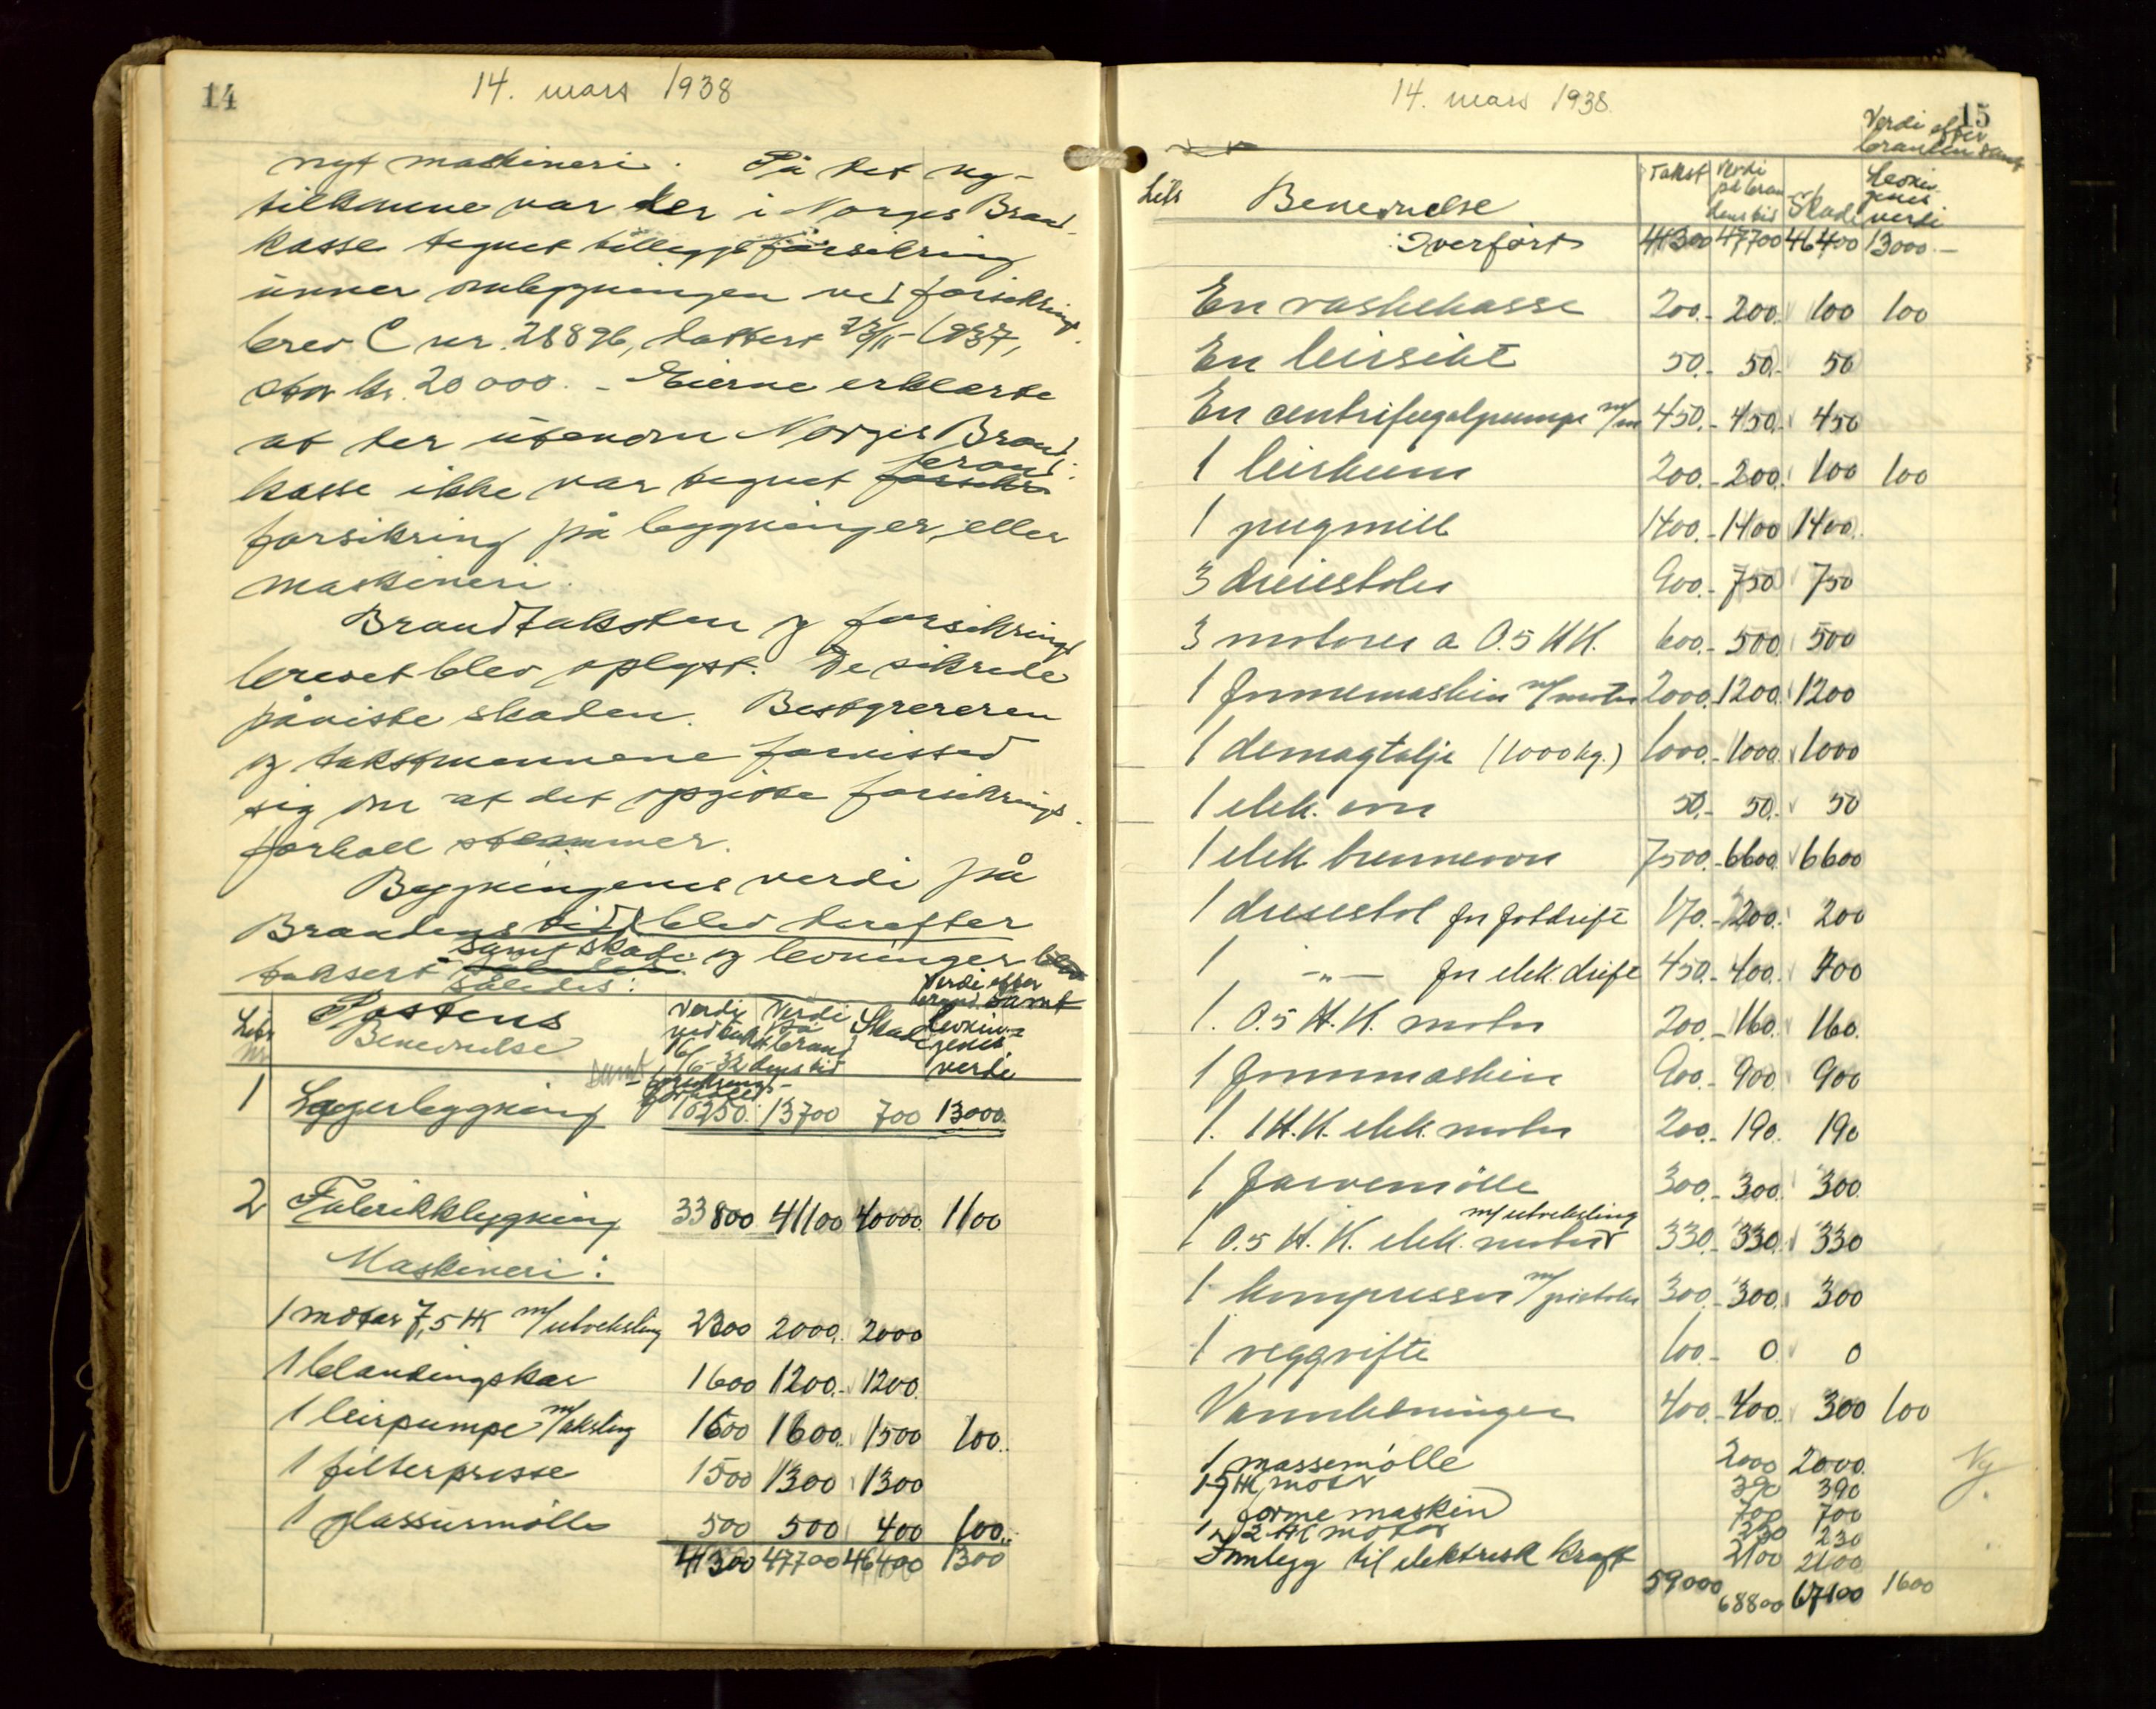 14
14. mars 1938
nyt maskineri. På det ny-
tilkomne var der i Norges Brand-
kasse tegnet tilleggsforsikring
under ombyggningen ved forsikrings-
brev C nr. 28896, datert 23/11-1937,
stor kr. 20000. - Eierne erklærte
at der utenom Norges Brand-
kasse ikke var tegnet brand-
forsikring på bygninger eller
maskineri.
Brandtaksten og forsikrings
brevet blev oplyst. De sikrede
påviste skaden. Bestyreren
og takstmennene forvissed
sig om at det opgitte forsikrings-
forhold stemmer.
Bygningenes verdi på
Brandens tid blev derefter
taksert samt skade og levninger
således:
Litr. Nr. Postens Benevnelse Verdi ved takst 16/6-32 samt forsikrings- forhold Verdi på brandens tid Skade Verdi efter brand samt levningenes verdi
1 Lagerbygning 16250. 13700 700 13000.
2 Fabrikkbygning 33800 41100 40000. 1100
Maskineri:
1 motor 7,5 HK m/utveksling 2300 2000. 2000
1 blandingskar 1600 1200.- 1200.
1 leirpumpe m/aksling 1600 1600. 1500 100.
1 filterpresse 1500 1300 1300
1 glassurmølle 500 500 400 100.
41300 47700 46400 1300
15
14. mars 1938.
Litr Benevnelse Takst Verdi på brandens tid Skade Verdi efter branden samt levningenes verdi
Overført 41300 47700 46400 13000.-
En vaskekasse 200.- 200. 100 100
En leirsikt 50.- 50.- 50
En centrifugalpumpe m/m 450.- 450.- 450
1 leirkum 200.- 200. 100 100
1 pugmill 1400.- 1400 1400.
3 dreiestoler 900.- 750 750
3 motorer a 0.5 HK. 600.- 500. 500
1 formemaskin m/motor 2000. 1200. 1200
1 demagtalje (1000 kg.) 1000.- 1000. 1000
1 elek. ovn 50.- 50.- 50
1 elek brennovn 7500.- 6600. 6600
1 dreiestol for fotdrift 170.- 200. 200
1 -"- for elek. drift 450.- 400. 400
1. 0.5 H.K. motor 200.- 160. 160.
1 formmaskin 900.- 900. 900
1. 1 H.K. elek. motor 200.- 190. 190
1 farvemølle 300.- 300. 300.
1 0.5 H.K. elek. motor m/utveksling 330.- 330. 330
1 kompressor m/pistoler 300.- 300. 300
1 veggvifte 100.- 0 0
Vannledninger 400.- 400. 300 100
1 massemølle 2000 2000. Ny
1 5 HK motor 390 390
1 forme maskin 700 700
1 2 HK motor 230 230
Innlegg til elektrisk kraft 2100 2100
59000 68800 67100 1600